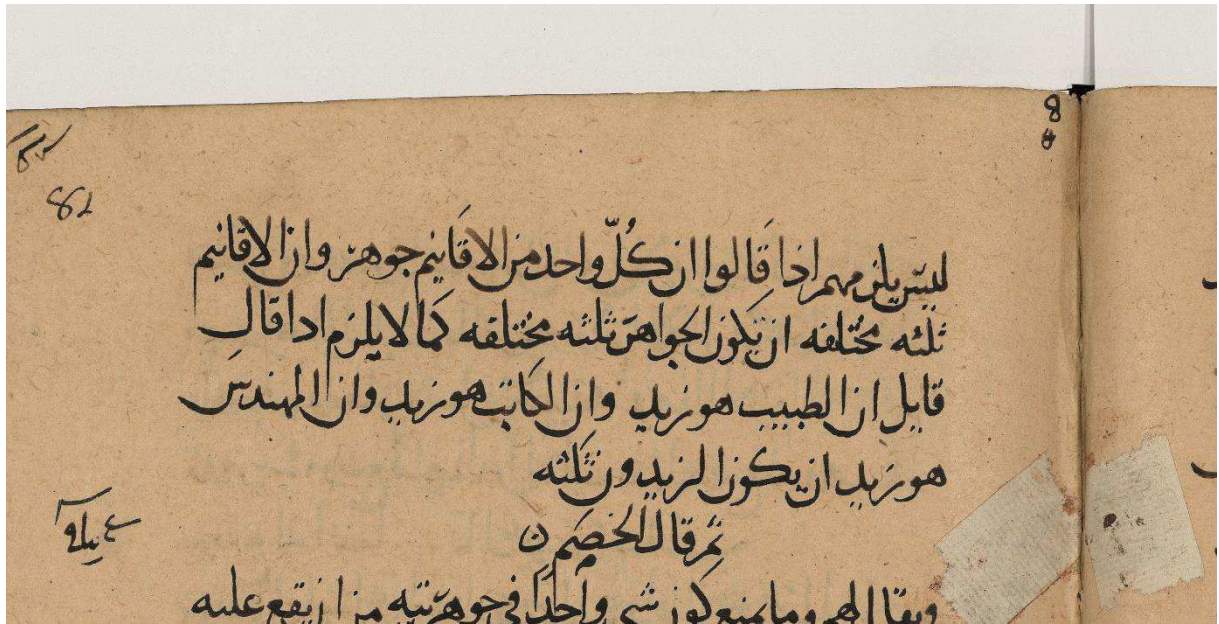 82
8
ليس يلزمهم اذا قالوا ان كُلّ واحد من الاقانيم جوهر وان الاقانيم
ثلثه مختلفه ان تكون الجواهر ثلثه مختلفه كما لا يلزم اذا قال
قايل ان الطبيب هو زيد وان الكاتب هو زيد وان المهندس
هو زيد ان يكون الزيدون ثلثه
ثم قال الخصم
ويقال لهم وما يمنع كون شي واحدًا في جوهريته من ان يقع عليه